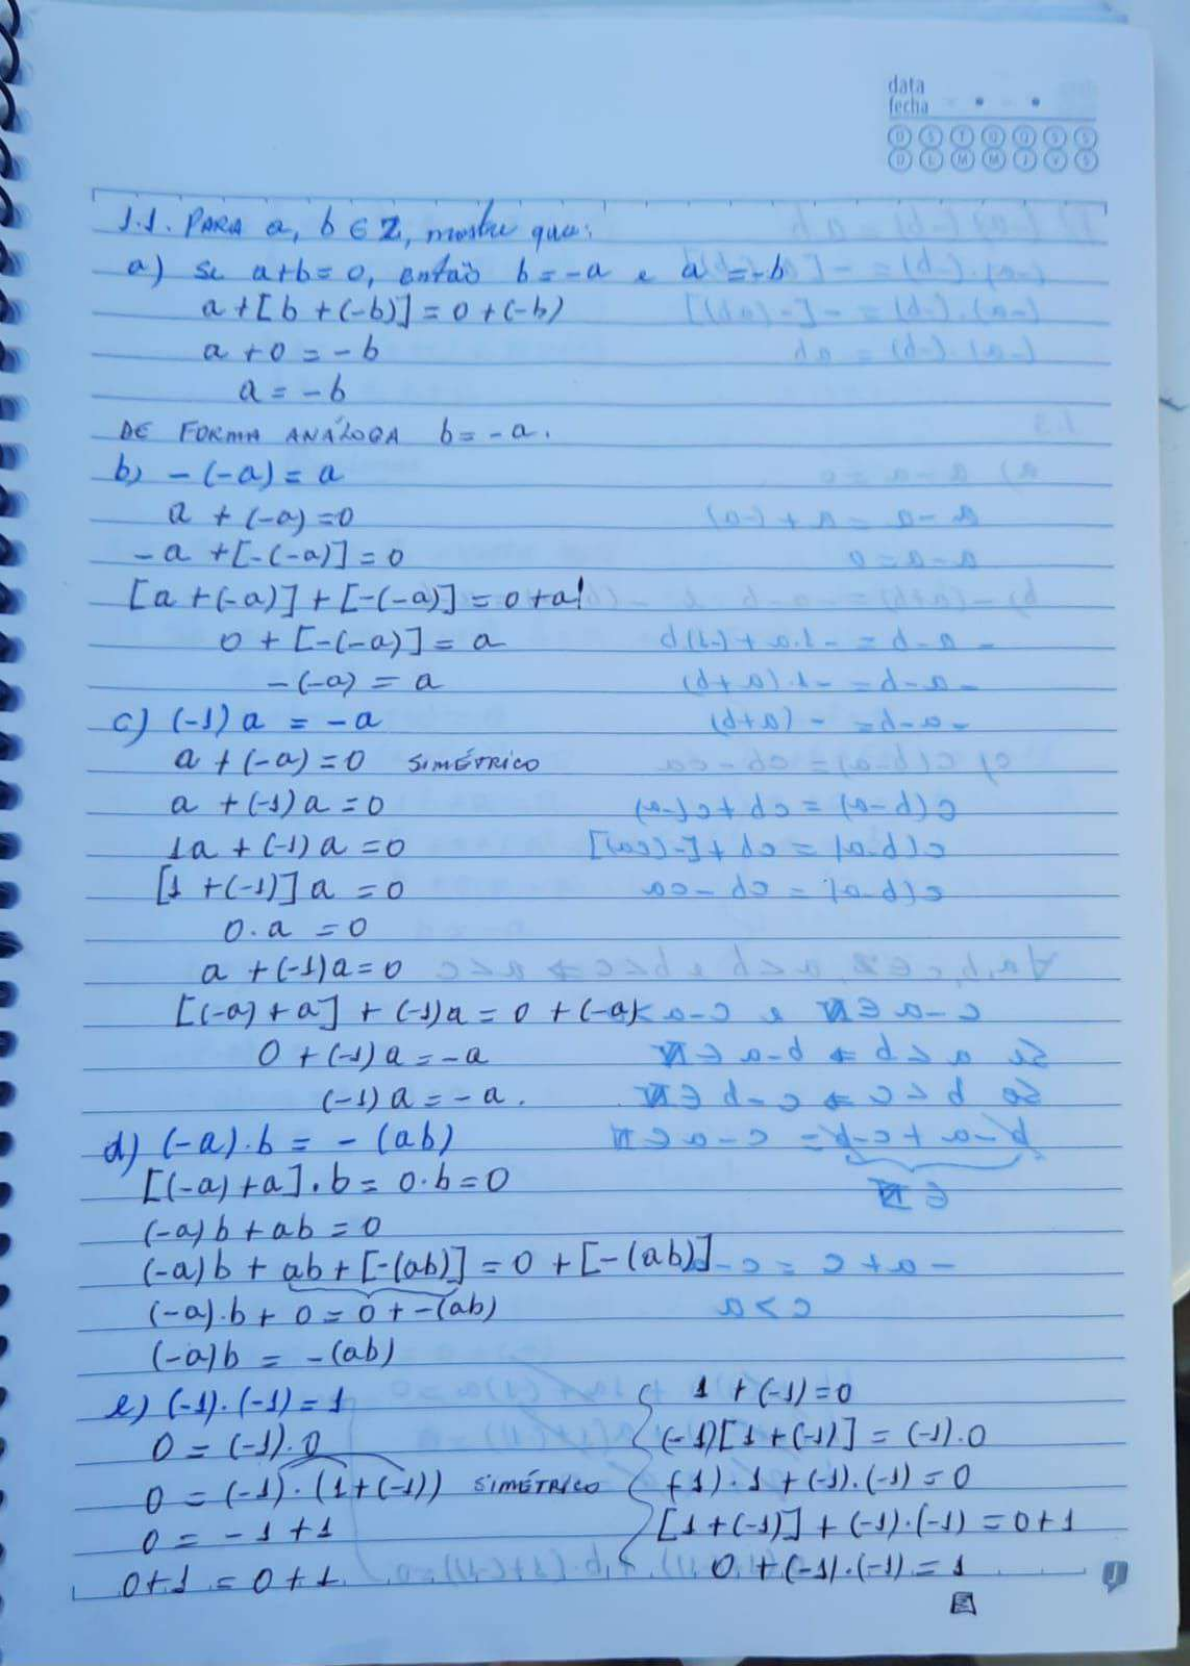 data
fecha
D S T Q Q S S
D L M M J V S
1.1. PARA a, b ∈ Z, mostre que:
a) Se a+b=0, então b=-a e a=-b
a+[b+(-b)]=0+(-b)
a+0=-b
a=-b
DE FORMA ANÁLOGA b=-a.
b) -(-a)=a
a+(-a)=0
-a+[-(-a)]=0
[a+(-a)]+[-(-a)]=0+a
0+[-(-a)]=a
-(-a)=a
c) (-1)a=-a
a+(-a)=0 SIMÉTRICO
a+(-1)a=0
1a+(-1)a=0
[1+(-1)]a=0
0.a=0
a+(-1)a=0
[(-a)+a]+(-1)a=0+(-a)
0+(-1)a=-a
(-1)a=-a.
d) (-a).b=-(ab)
[(-a)+a].b=0.b=0
(-a)b+ab=0
(-a)b+ab+[-(ab)]=0+[-(ab)]
(-a).b+0=0+-(ab)
(-a)b=-(ab)
e) (-1).(-1)=1
0=(-1).0
0=(-1).(1+(-1)) SIMÉTRICO
0=-1+1
0+1=0+1
1+(-1)=0
(-1)[1+(-1)]=(-1).0
(-1).1+(-1).(-1)=0
[1+(-1)]+(-1).(-1)=0+1
0+(-1).(-1)=1